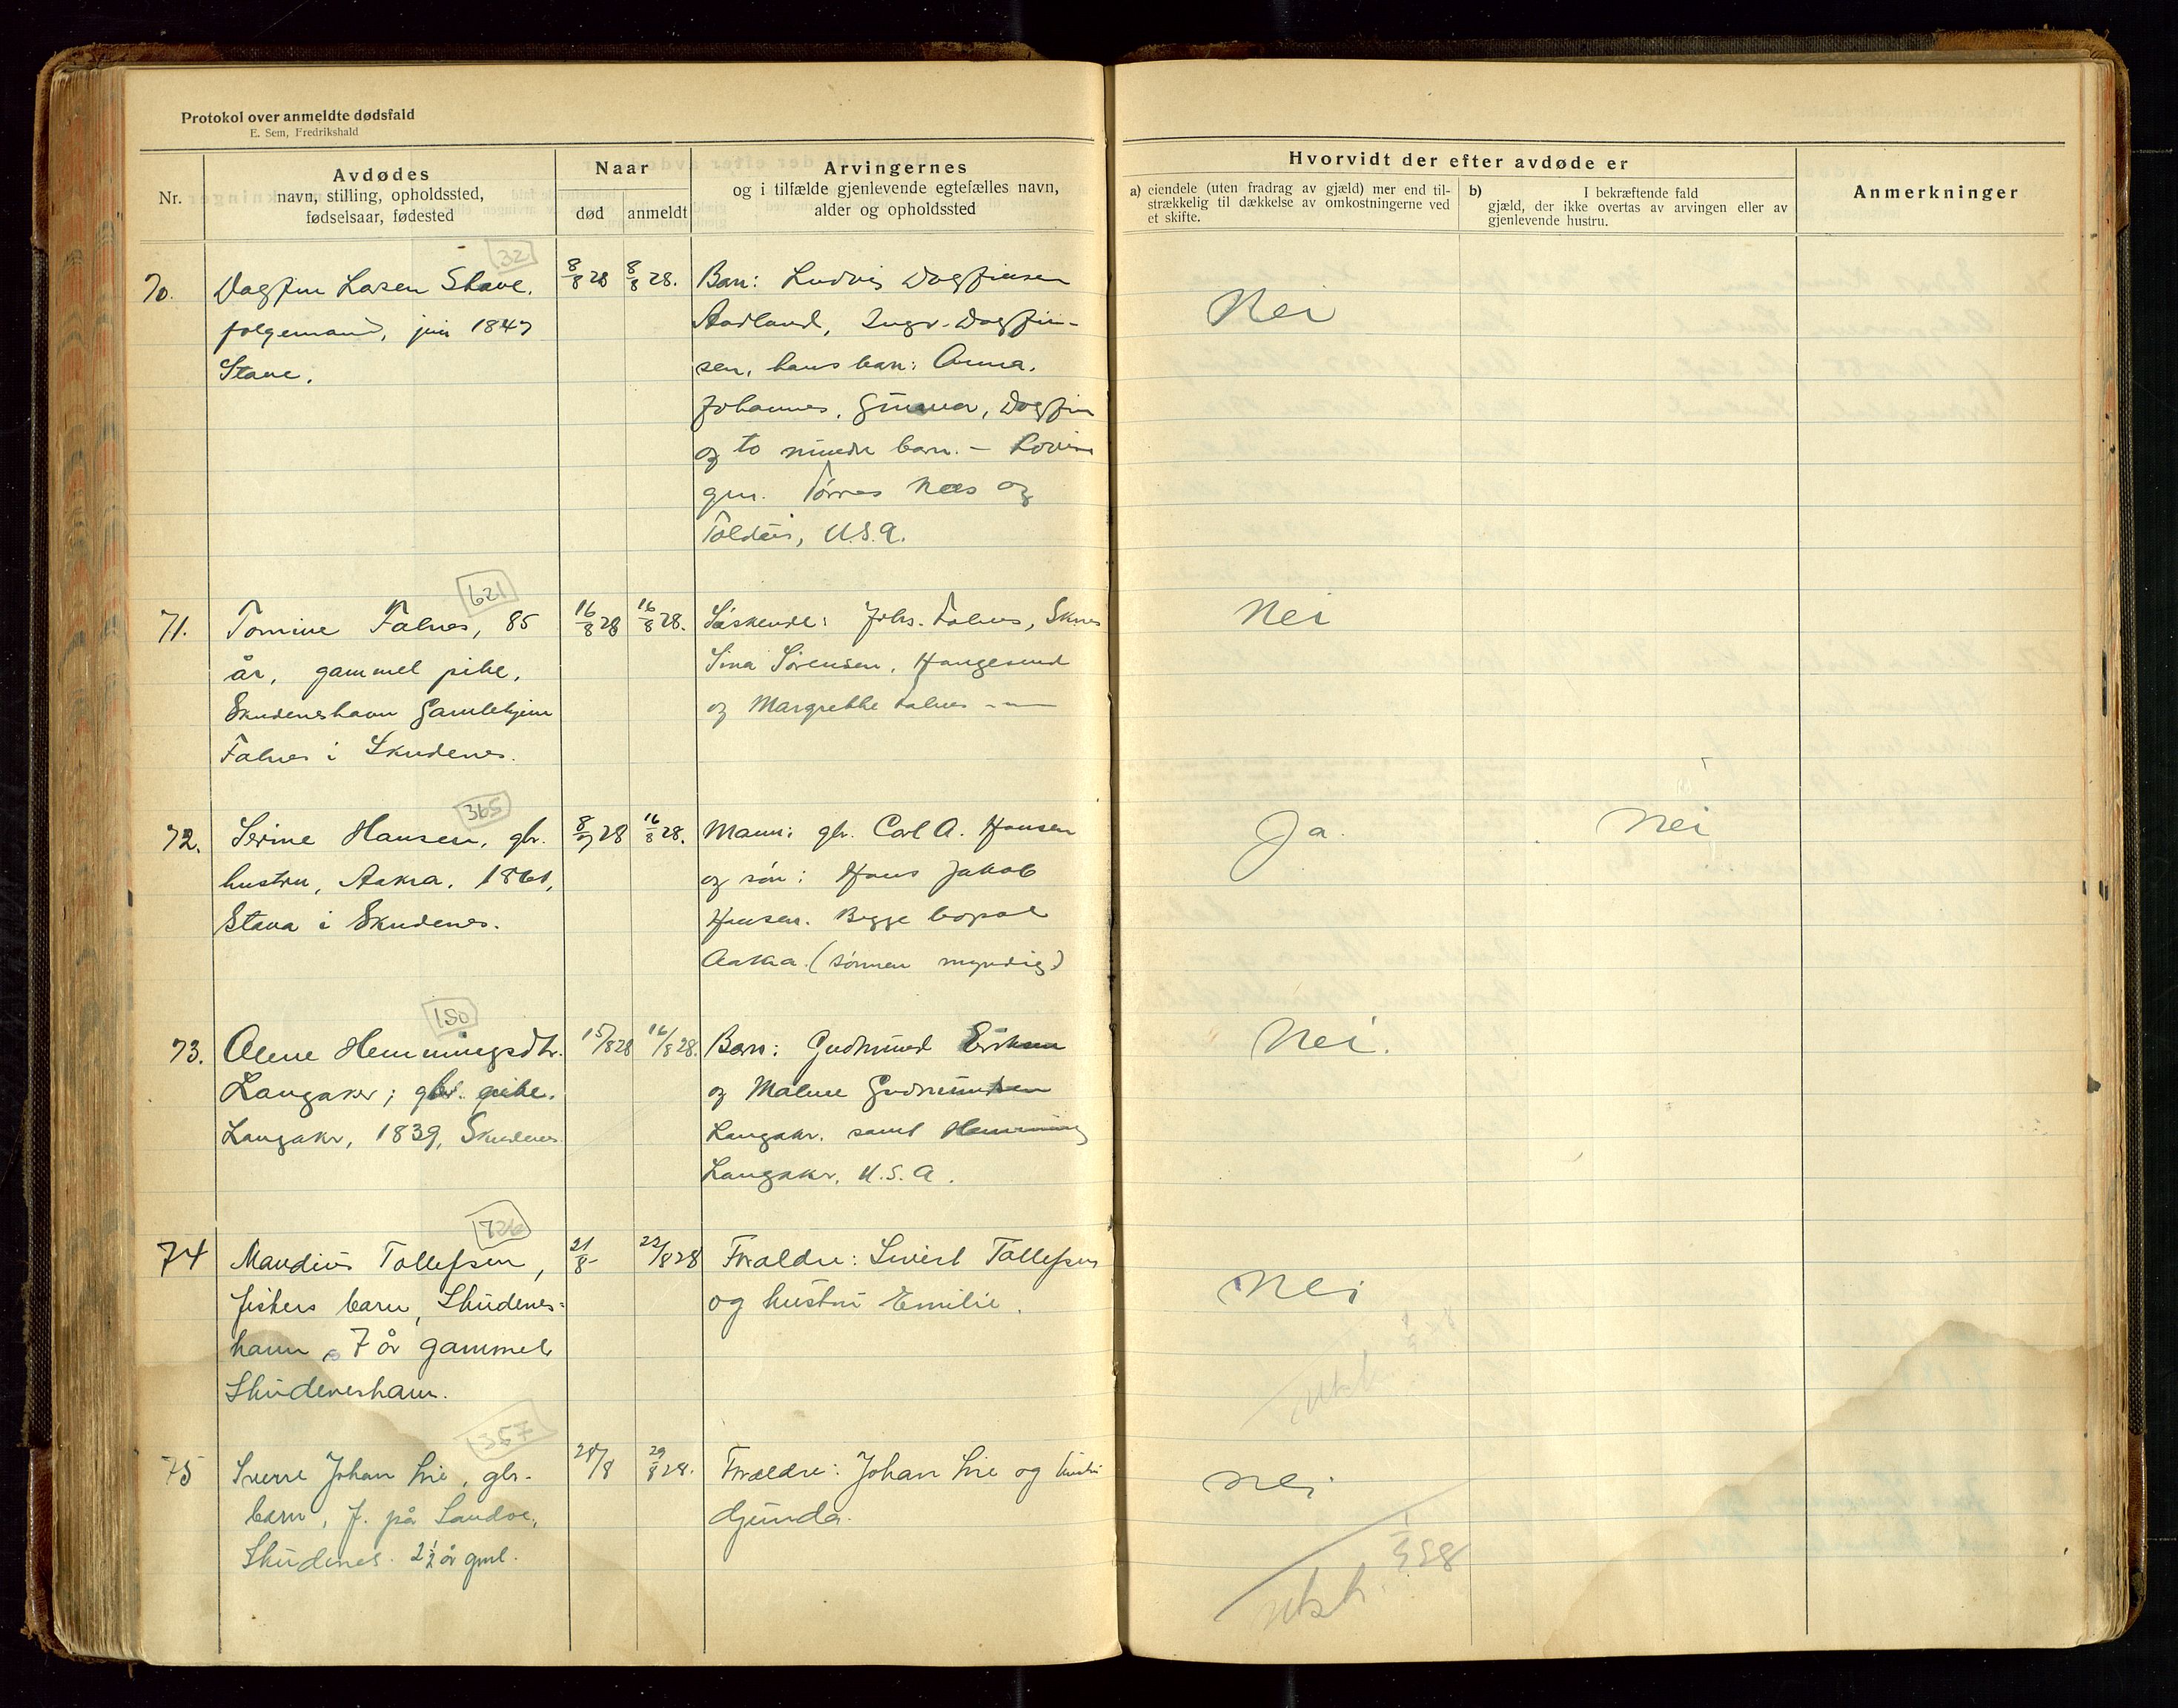 Protokol over anmeldte dødsfald
E. Sem, Fredrikshald
Nr.
Avdødes
navn, stilling, opholdssted,
fødselsaar, fødested
Naar
død
anmeldt
Arvingernes
og i tilfælde gjenlevende egtefælles navn,
alder og opholdssted
Hvorvidt der efter avdøde er
a) eiendele (uten fradrag av gjæld) mer end til-
strækkelig til dækkelse av omkostningerne ved
et skifte.
b) I bekræftende fald
gjæld, der ikke overtas av arvingen eller av
gjenlevende hustru.
Anmerkninger
32
70.
Dagfin Larsen Stave.
følgemand, juni 1847
Stave.
8/8 28
8/8 28.
Barn: Ludvig Dagfinsen
Aadland, Ingv. Dagfin-
sen, hans barn: Anna,
Johannes, Gunnar, Dagfin
og to mindre barn. -
gm. Tørres Næs og
U.S.A.
Nei
621
71.
Tomine Falnes, 85
år, gammel pike,
Skudeneshavn Gamlehjem
Falnes i Skudenes.
16/8 28
16/8 28.
Søskende: Johs. Falnes, Sknes
Sina Sørensen, Haugesund
og Margrethe Falnes -"-
Nei
365
72.
Serine Hansen, gbr.
hustru, Aakra. 1861,
Stava i Skudenes.
8/7 28
16/8 28.
Mann: gbr. Carl A. Hansen
og søn: Hans Jakob
Hansen. Begge bopæl
Aakra. (sønnen myndig)
Ja.
Nei
150
73.
Alene Hemmingsdtr.
Langaker; gbr. pike.
Langakr, 1839, Skudenes
15/8 28
16/8 28.
Barn: Gudmund Eriksen
og Malene Gudmundsen
Langakr. samt Hemming
Langaker, U.S.A.
Nei.
726
74
Maudius Tollefsen,
fiskers barn, Skudenes-
havn, 7 år gammel
Skudeneshavn.
21/8 -
22/8 28
Forældre: Sivert Tollefsen
og hustru Emilie.
Nei
357
75
Sverre Johan Lie, gbr.-
barn, f. på Sandve,
Skudenes. 2 1/2 år gml.
28/8
29/8 28.
Forældre: Johan Lie og hustru
Gunda.
nei
1/9 28
utsk.